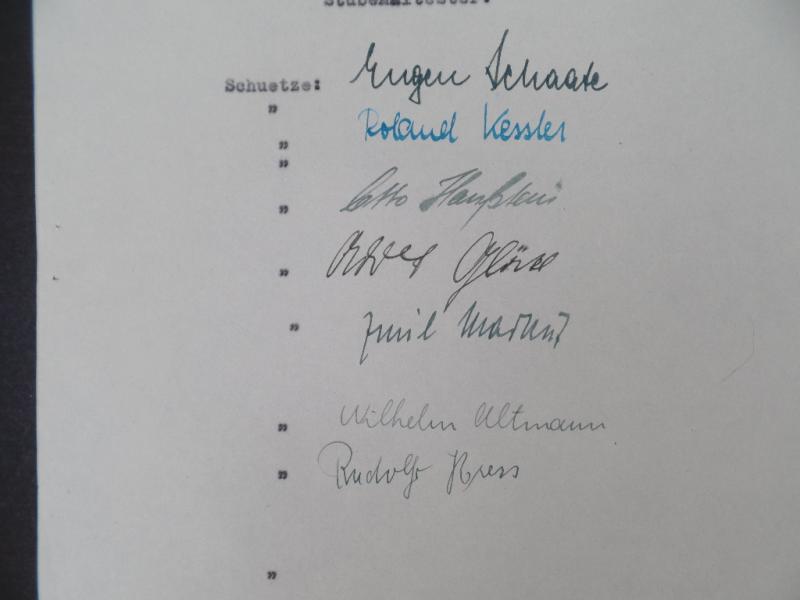 Stubenältester:
Schuetze: Eugen Schaake
"
" Roland Kessler
"
" Otto
"
" Emil
" Wilhelm Altmann
" Rudolf Hress
"